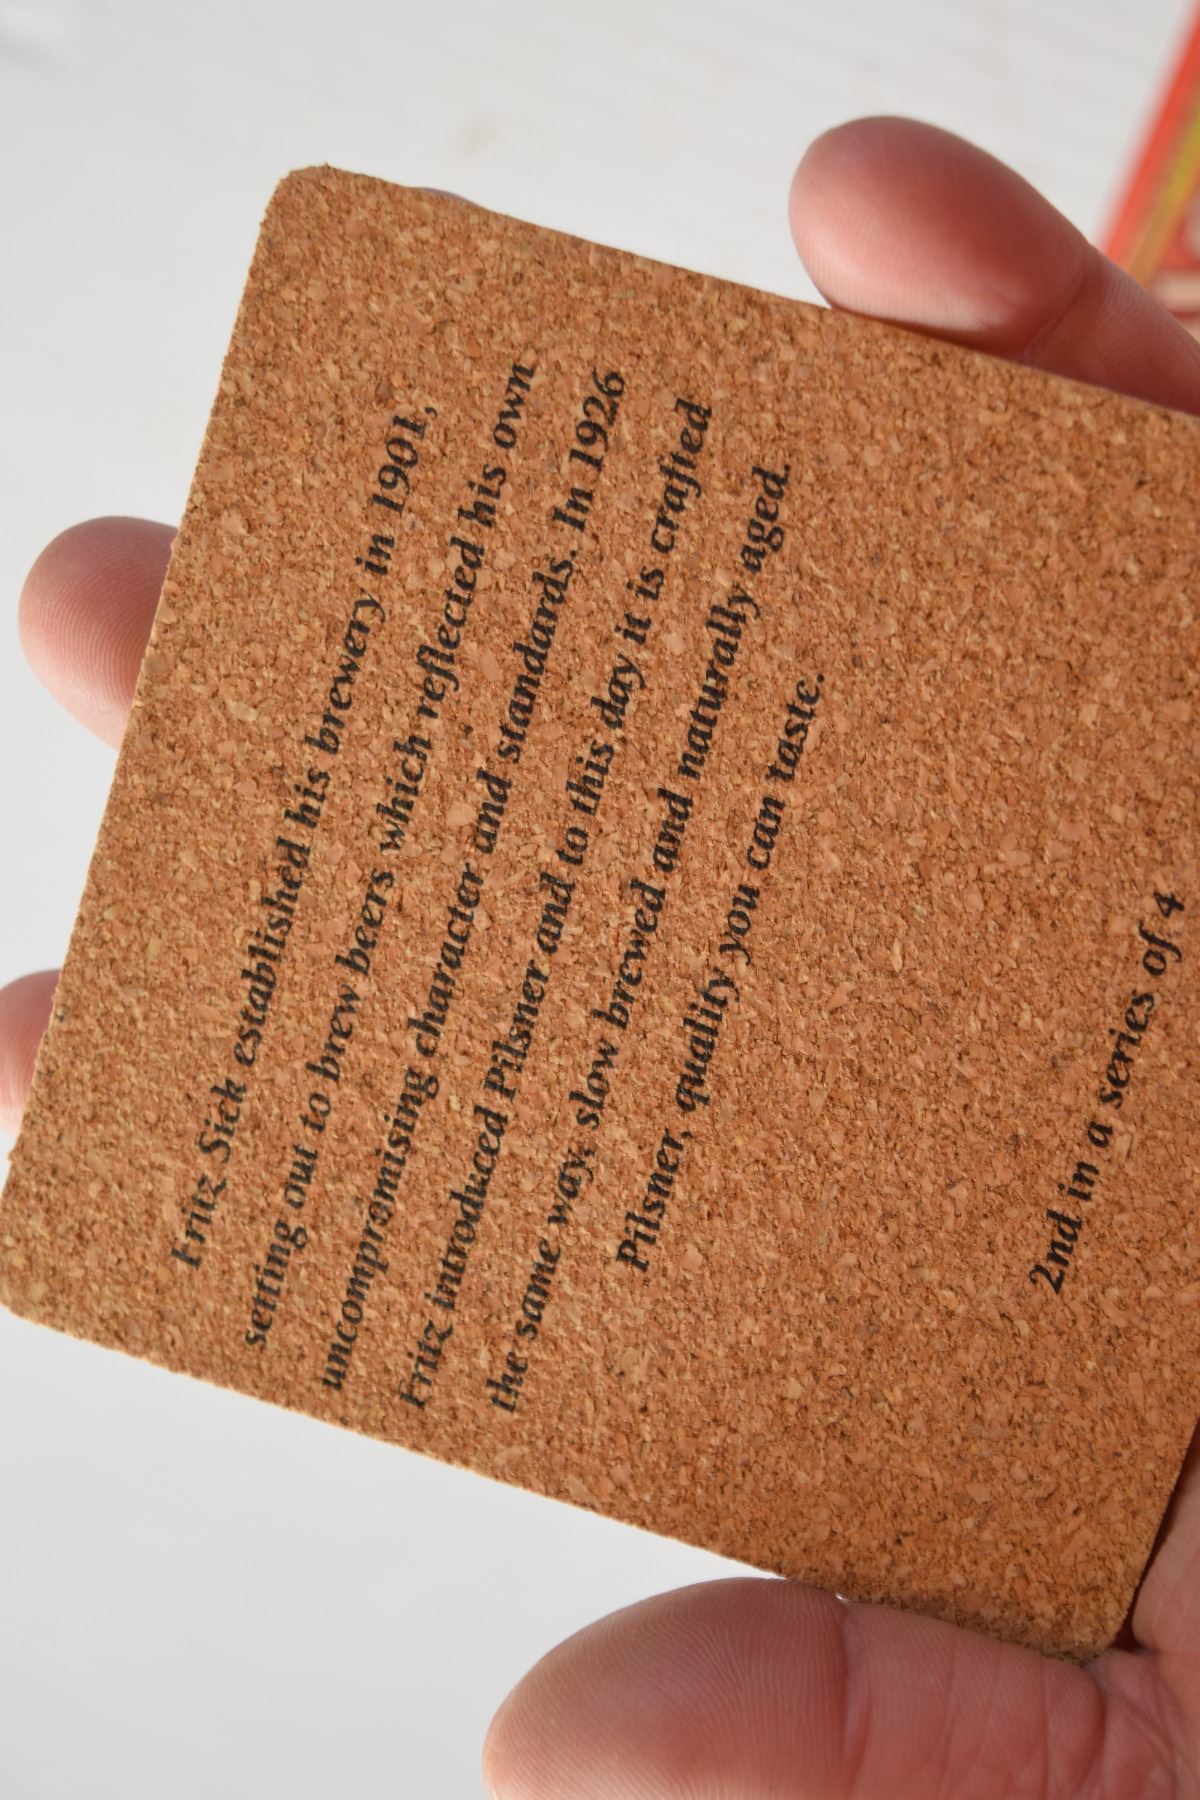 Fritz Sick established his brewery in 1901,
setting out to brew beers which reflected his own
uncompromising character and standards. In 1926
Fritz introduced Pilsner and to this day it is crafted
the same way, slow brewed and naturally aged.
Pilsner, quality you can taste.
2nd in a series of 4